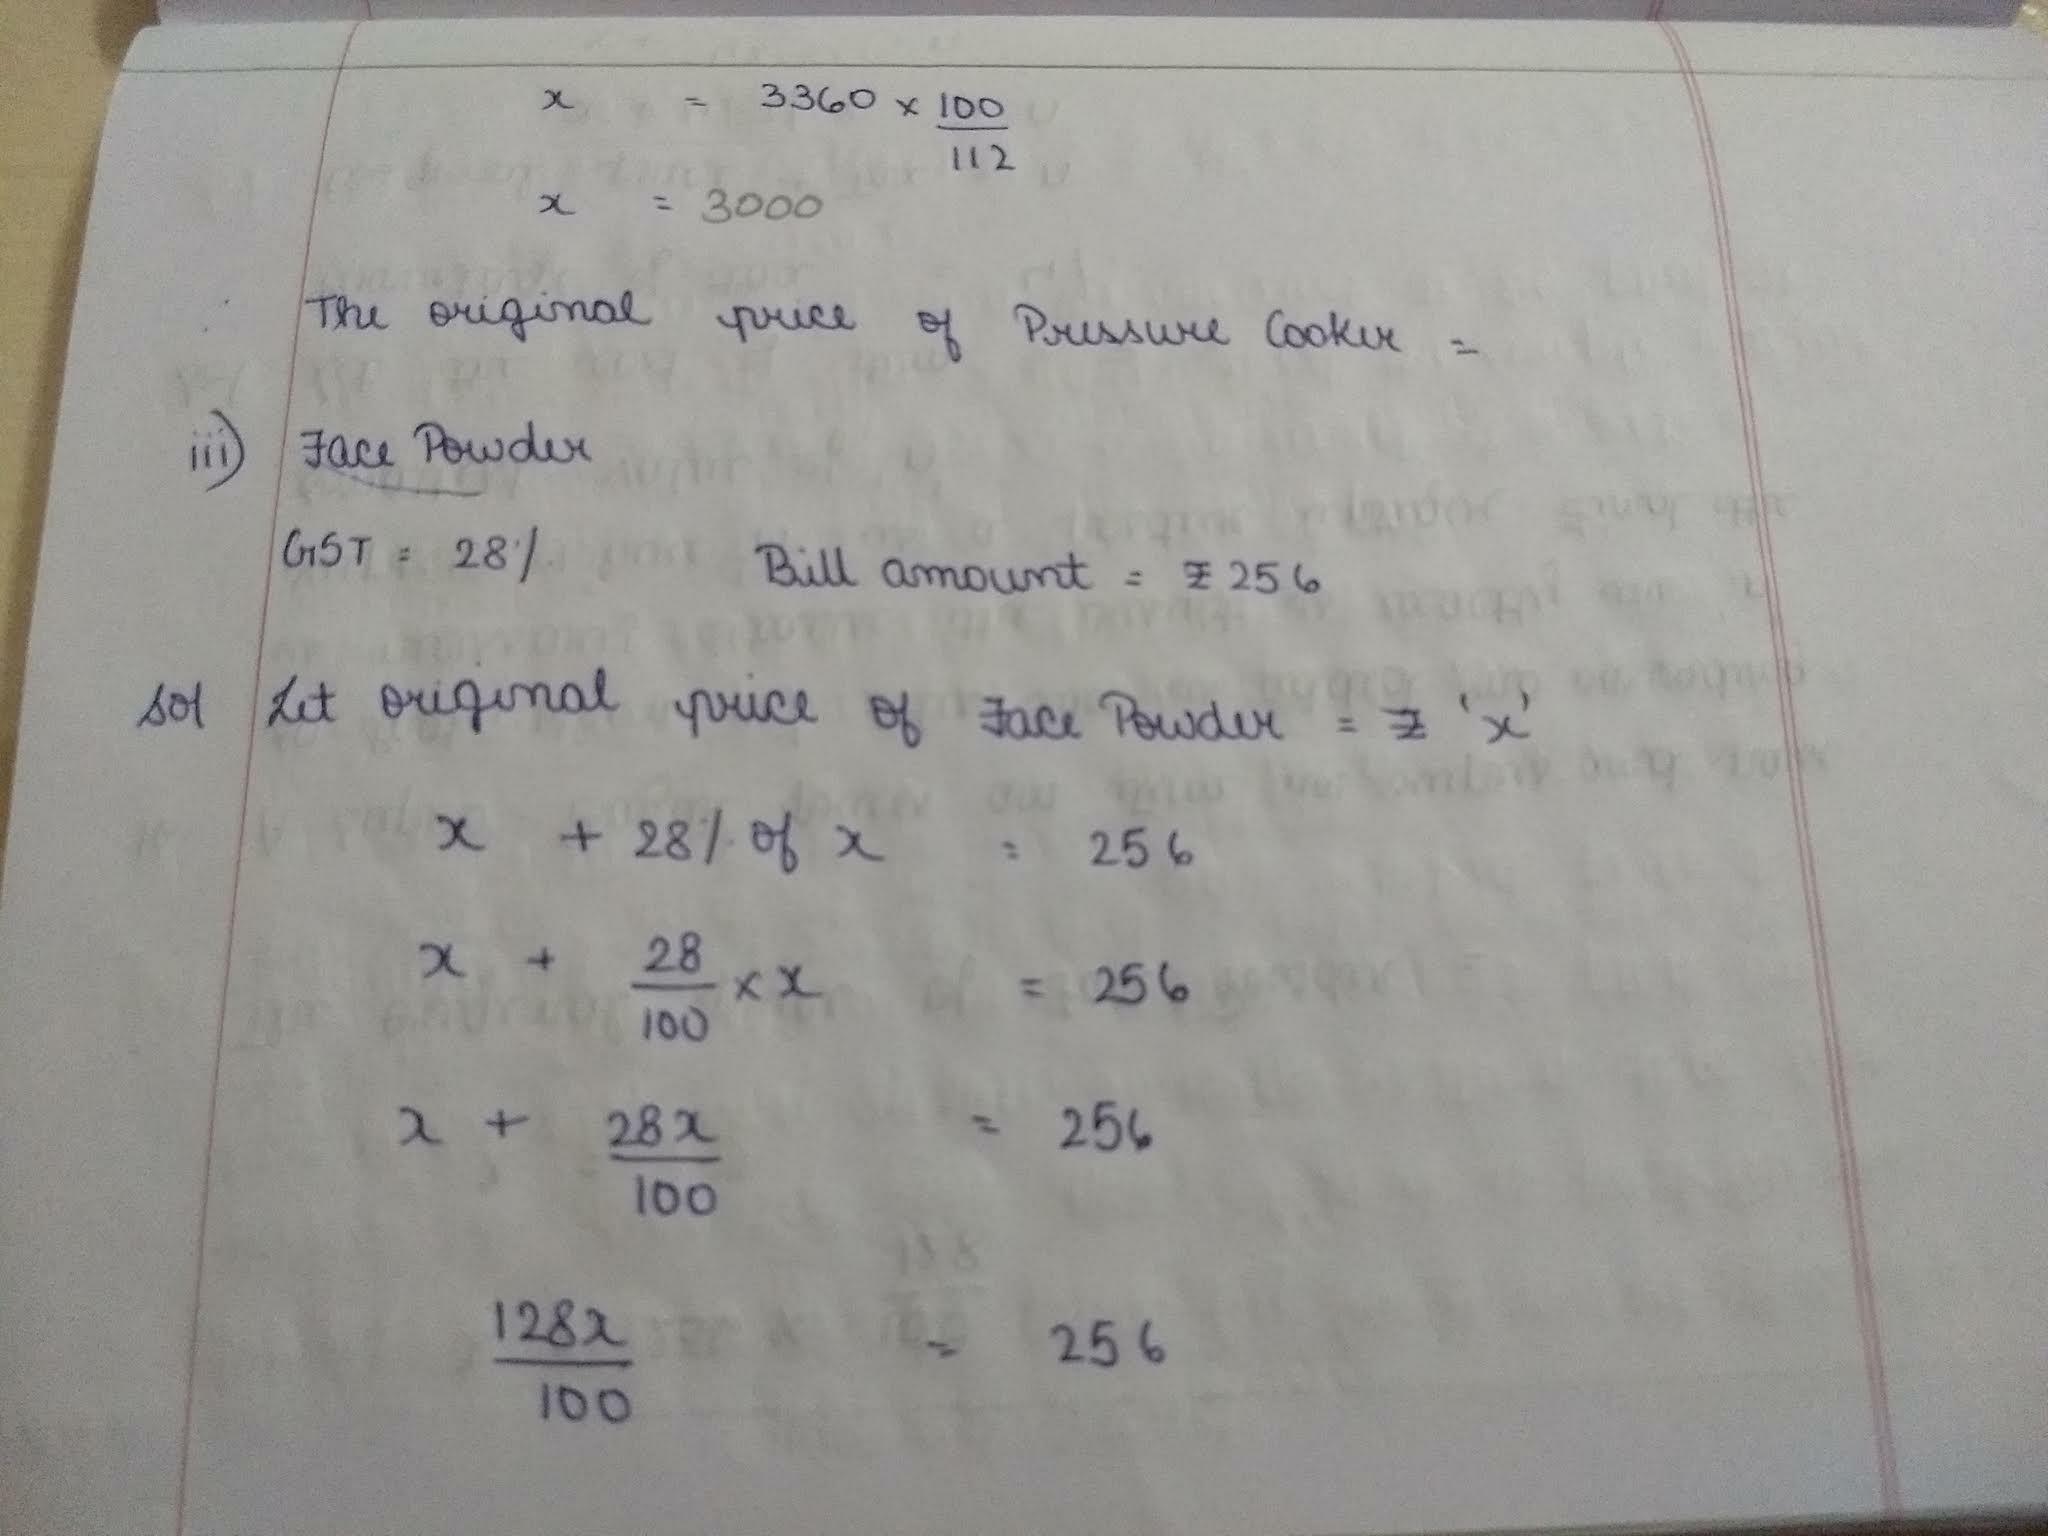 x = 3360 × 100/112
x = 3000
The original price of Pressure Cooker =
iii) Face Powder
GST = 28% Bill amount = ₹256
Sol Let original price of Face Powder = ₹ 'x'
x + 28% of x = 256
x + 28/100 × x = 256
x + 28x/100 = 256
128x/100 = 256